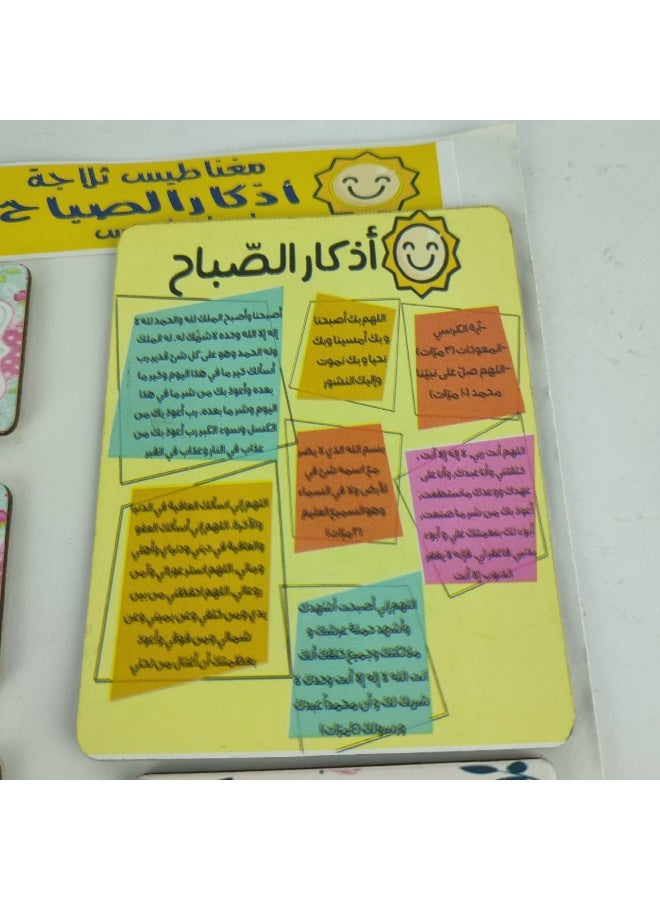 مغناطيس ثلاجة
أذكار الصباح
أذكار الصّباح
-آية الكرسي
-المعوذات (٣ مرّات)
-اللهم صلّ على نبيّنا
محمد (١٠ مرّات)
اللهم بك أصبحنا
وبك أمسينا وبك
نحيا وبك نموت
وإليك النشور
أصبحنا وأصبح الملك لله والحمد لله لا
إله إلا الله وحده لا شريك له، له الملك
وله الحمد وهو على كل شئ قدير رب
أسألك خير ما في هذا اليوم وخير ما
بعده وأعوذ بك من شر ما في هذا
اليوم وشر ما بعده، رب أعوذ بك من
الكسل وسوء الكبر رب أعوذ بك من
عذاب في النار وعذاب في القبر
اللهم أنت ربي، لا إله إلا أنت،
خلقتني وأنا عبدك، وأنا على
عهدك ووعدك ما استطعت،
أعوذ بك من شر ما صنعت،
أبوء لك بنعمتك علي و أبوء
بذنبي فاغفر لي، فإنه لا يغفر
الذنوب إلا أنت
بسم الله الذي لا يضر
مع اسمه شئ في
الأرض ولا في السماء
وهو السميع العليم
(٣ مرّات)
اللهم إني أسألك العافية في الدنيا
والآخرة، اللهم إني أسألك العفو
والعافية في ديني ودنياي وأهلي
ومالي، اللهم استر عوراتي وآمن
روعاتي، اللهم احفظني من بين
يدي ومن خلفي وعن يميني وعن
شمالي ومن فوقي وأعوذ
بعظمتك أن أغتال من تحتي
اللهم إني أصبحت أشهدك
وأشهد حملة عرشك و
ملائكتك وجميع خلقك أنك
أنت الله لا إله إلا أنت وحدك لا
شريك لك و أن محمداً عبدك
ورسولك (٤ مرّات)